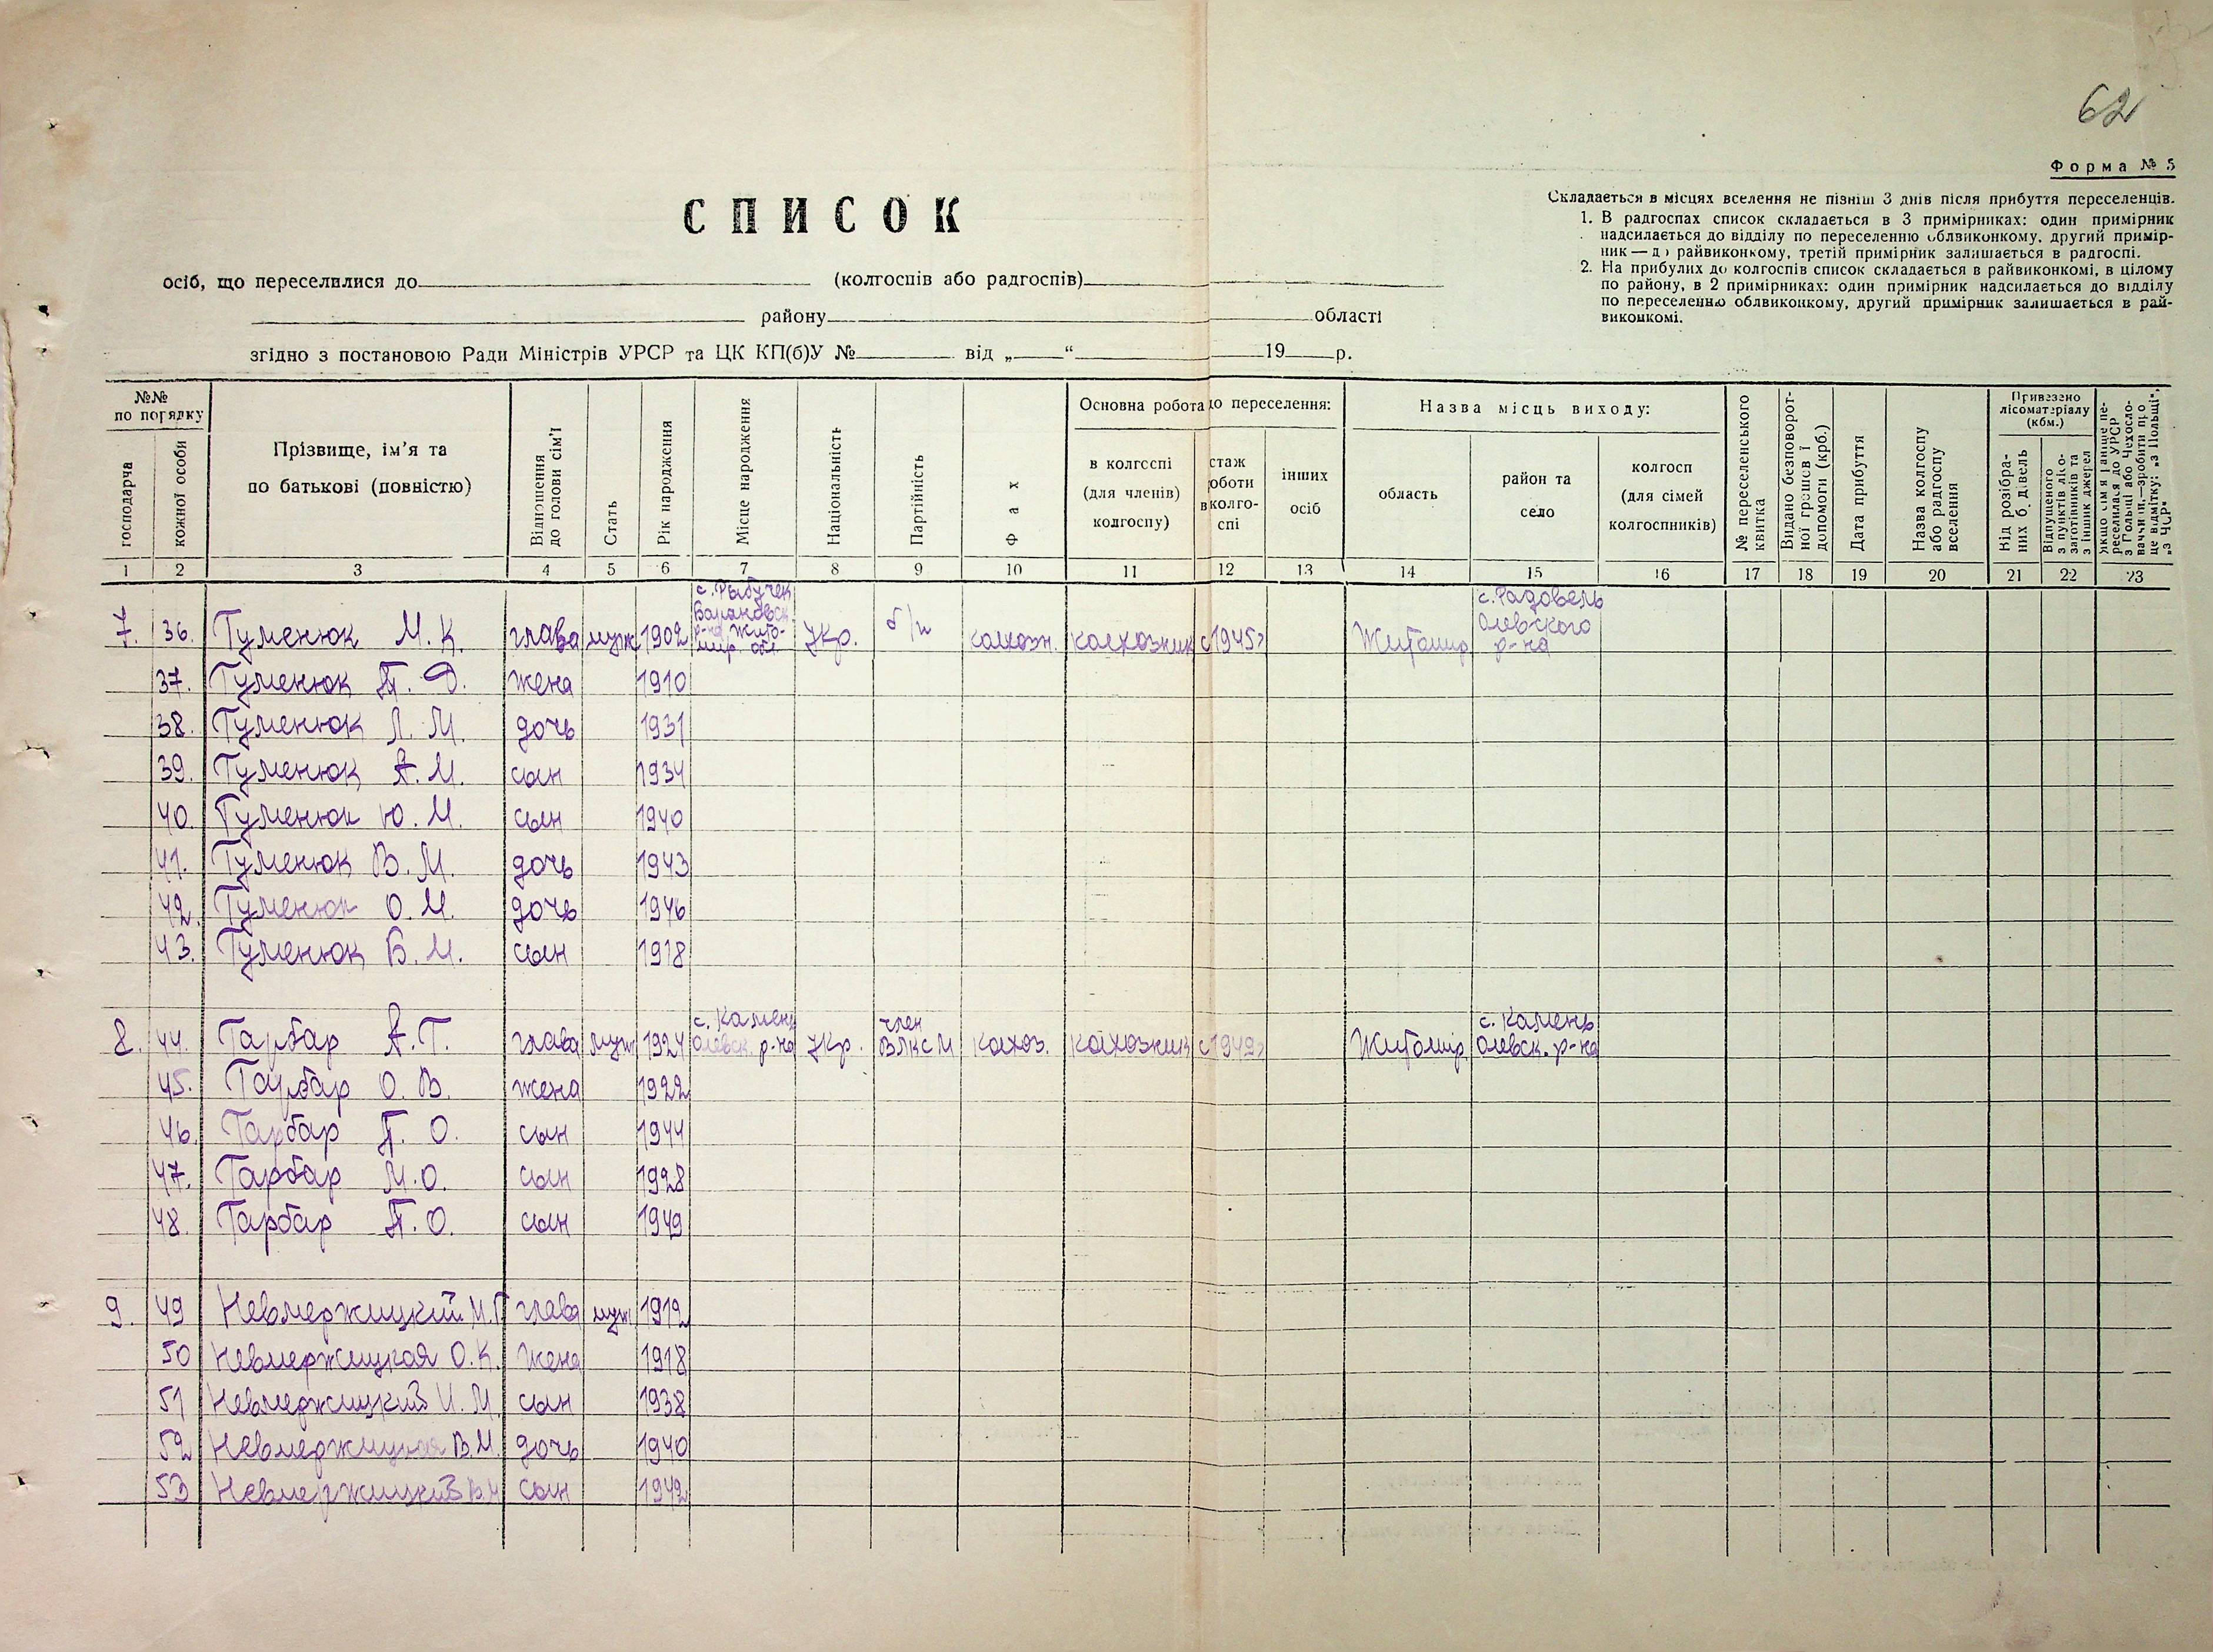 62
Форма № 5
СПИСОК
Складається в місцях вселення не пізніш 3 днів після прибуття переселенців.
1. В радгоспах список складається в 3 примірниках: один примірник
надсилається до відділу по переселенню облвиконкому, другий примір-
ник — до райвиконкому, третій примірник залишається в радгоспі.
2. На прибулих до колгоспів список складається в райвиконкомі, в цілому
по району, в 2 примірниках: один примірник надсилається до відділу
по переселенню облвиконкому, другий примірник залишається в рай-
виконкомі.
осіб, що переселилися до (колгоспів або радгоспів)
району області
згідно з постановою Ради Міністрів УРСР та ЦК КП(б)У № від „ “ 19 р.
№№ по порядку
господарча
кожної особи
Прізвище, ім'я та
по батькові (повністю)
Відношення
до голови сім'ї
Стать
Рік народження
Місце народження
Національність
Партійність
Фах
Основна робота до переселення:
в колгоспі
(для членів)
колгоспу)
стаж
роботи
в колго-
спі
інших
осіб
Назва місць виходу:
область
район та
село
колгосп
(для сімей
колгоспників)
№ переселенського
квитка
Видано безповорот-
ної грошової
допомоги (крб.)
Дата прибуття
Назва колгоспу
або радгоспу
вселення
Привезено
лісоматеріалу
(кбм.)
Від розібра-
них будівель
Відпущеного
з пунктів лісо-
заготівників та
з інших джерел
Якщо сім'я раніше пе-
реселилася до УРСР
з Польщі або Чехосло-
ваччини,—зробити про
це відмітку: „з Польщі“,
„з ЧСР“
1 2 3 4 5 6 7 8 9 10 11 12 13 14 15 16 17 18 19 20 21 22 23
7. 36. Туменюк М. К. глава муж 1902 с. Рыбучек Барановск. р-на Жито-мир. обл. Укр. б/п колхозн. колхозник с 1945г Житомир с. Радовель Олевского р-на
37. Туменюк П. Ф. жена 1910
38. Туменюк Л. М. дочь 1931
39. Туменюк А. М. сын 1934
40. Туменюк Ю. М. сын 1940
41. Туменюк В. М. дочь 1943
42. Туменюк О. М. дочь 1946
43. Туменюк В. М. сын 1918
8. 44. Тарбар А. Т. глава муж 1924 с. Камень Олевск. р-на Укр. член ВЛКСМ колхоз. колхозник с 1942г Житомир с. Камень Олевск. р-на
45. Тарбар О. В. жена 1922
46. Тарбар П. О. сын 1944
47. Тарбар М. О. сын 1928
48. Тарбар П. О. сын 1949
9. 49 Невмержицкий М. П глава муж 1912
50 Невмержицкая О. К. жена 1918
51 Невмержицкий И. М. сын 1938
52 Невмержицкая В. М. дочь 1940
53 Невмержицкий В. М сын 1942